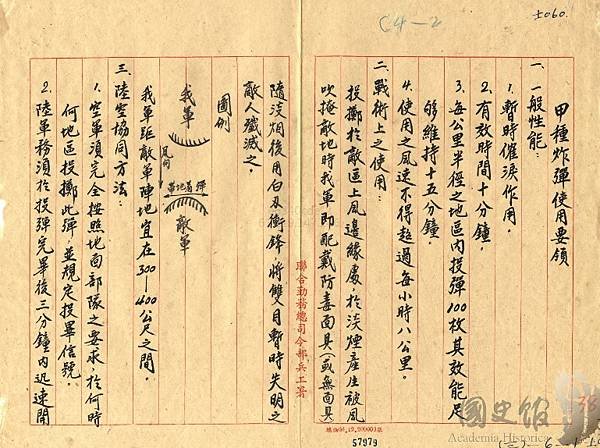 ±060.
C4-2
甲種炸彈使用要領
一、一般性能：
1. 暫時催淚作用。
2. 有效時間十分鐘。
3. 每公里半徑之地區內投彈100枚其效能足
夠維持十五分鐘。
4. 使用之風速不得超過每小時八公里。
二、戰術上之使用：
投擲於敵區上風邊緣處，於淡煙產生被風
吹掩敵地時我軍即配戴防毒面具(或無面具
聯合勤務總司令部兵工署
57979
隨淡烟後用白刃衝鋒，將雙目暫時失明之
敵人殲滅之。
圖例
我軍
風向
彈着地帶
敵軍
我軍距敵軍陣地宜在300—400公尺之間。
三、陸空協同方法：
1. 空軍須完全按照地面部隊之要求，於何時
何地區投擲此彈，並規定投畢信號。
2. 陸軍務須於投彈完畢後三分鐘內迅速開
國史館
Academia Historica